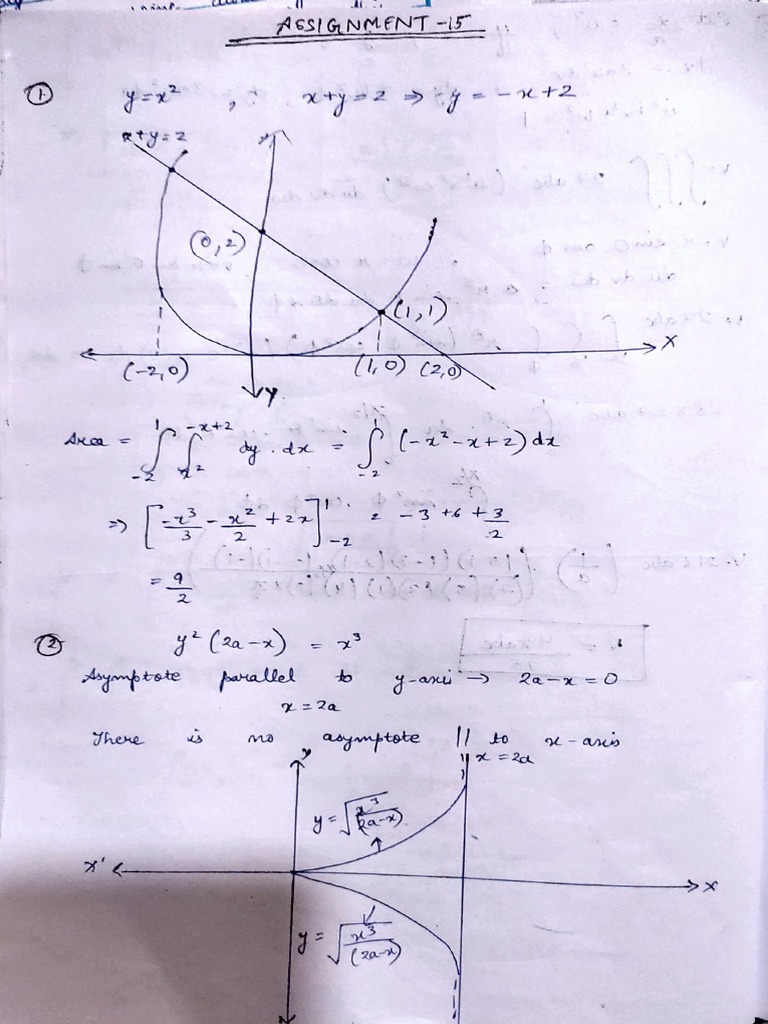 ASSIGNMENT-15
① y=x² , x+y=2 ⇒ y = -x+2
x+y=2
y
(0,2)
(1,1)
x
(-2,0) (1,0) (2,0)
y
Area = ∫₋₂¹ ∫ₓ²^(-x+2) dy.dx = ∫₋₂¹ (-x²-x+2)dx
⇒ [-x³/3 - x²/2 + 2x]₋₂¹ = -3+6+3/2
= 9/2
② y²(2a-x) = x³
Asymptote parallel to y-axis → 2a-x=0
x=2a
There is no asymptote || to x-axis
y x=2a
y = √(x³/(2a-x))
x' x
y = √(x³/(2a-x))